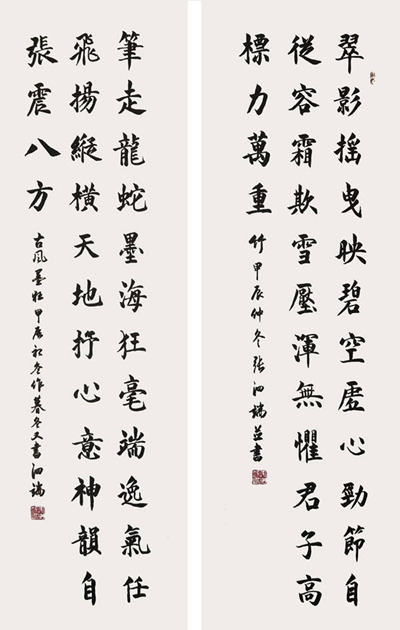 翠影摇曳映碧空虛心勁節自
従容霜欺雪壓渾無懼君子高
標力萬重 竹 甲辰仲冬张泗端並書
筆走龍蛇墨海狂毫端逸氣任
飛揚縱橫天地抒心意神韻自
張震八方 古風墨狂甲辰初冬作暮冬又書泗端